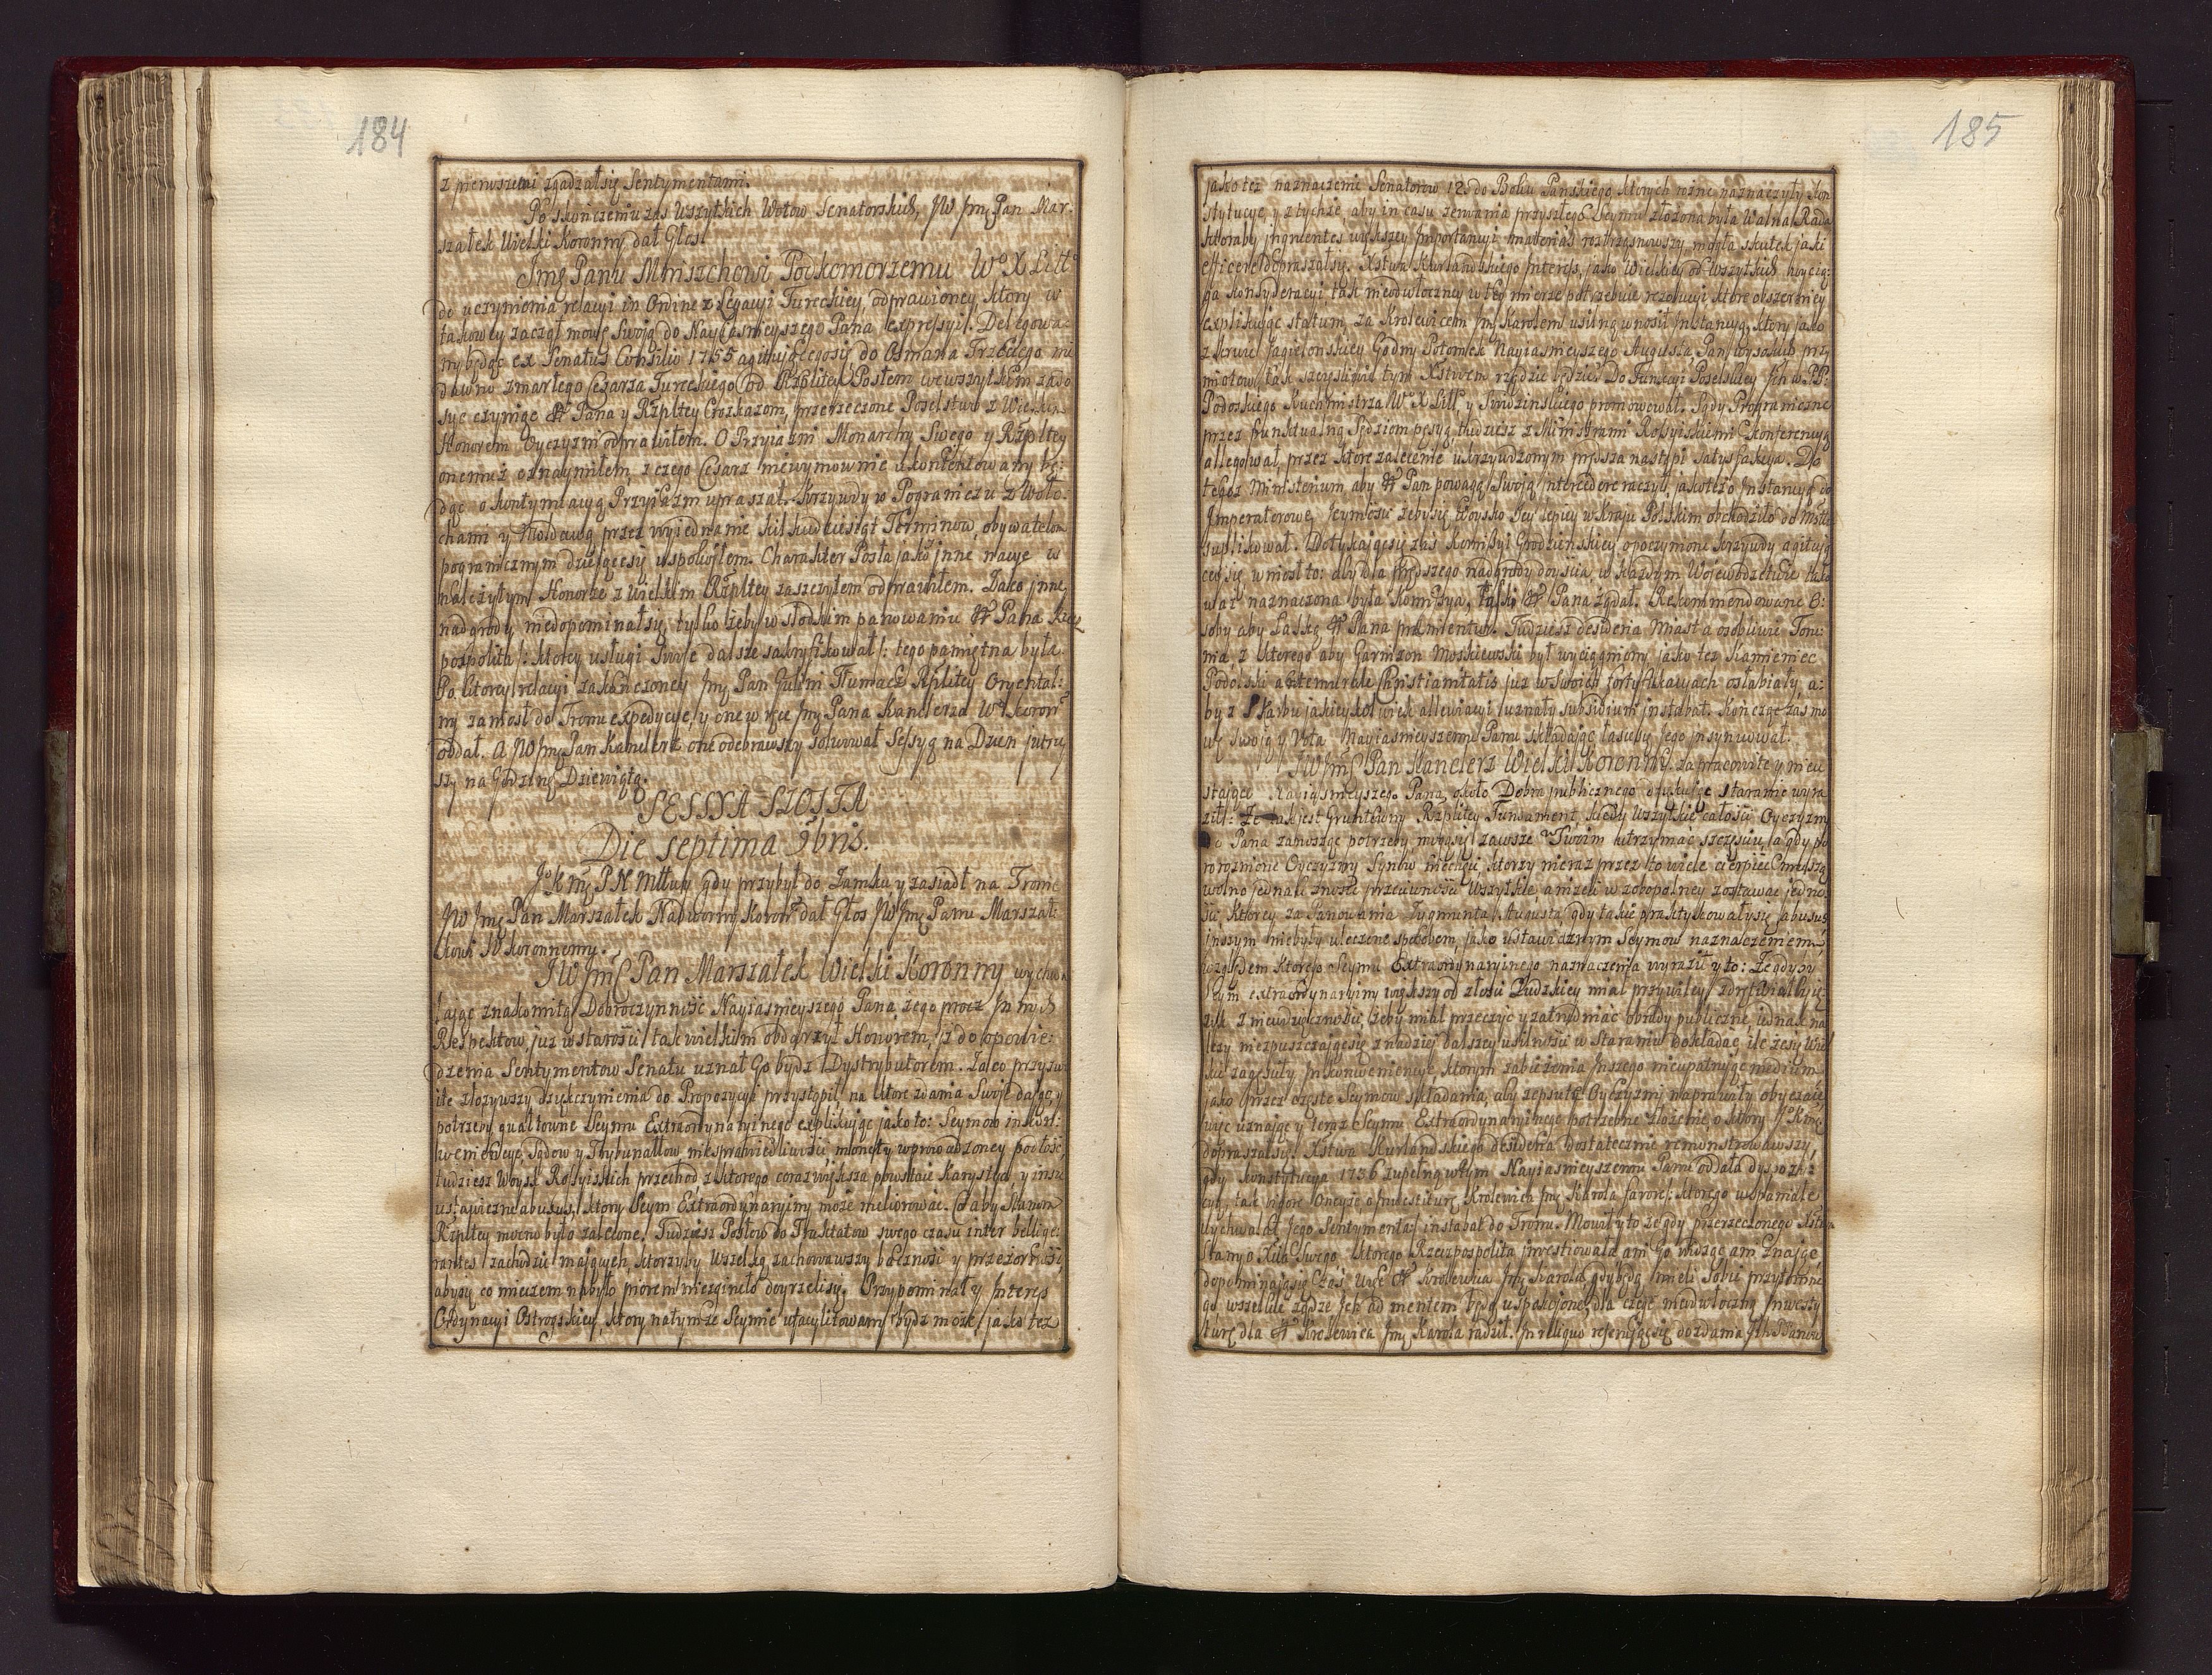 184
z pierwszemi zgadzał się Sentymentami.
Po skończeniu zaś wszytkich Wotow Senatorskich, JW Jmę Pan Mar:
szałek Wielki Koronny dał Głos
Jmę Panu Mniszchowi Podkomorzemu Wo X Litto
do uczynienia relacyi in Ordine z Legacyi Tureckiey, odprawioney, ktory w
takowey zaczął mowę Swoją do Nayiasnieyszego Pana expressyi. Delegowa:
ny będąc ex Senatus Consilio 1755 agitującego się do Osmana Trzeciego nie
dawno zmarłego Cesarza Tureckiego od Rzplitey Posłem we wszytkim zado
syc czyniąc Pana y Rzpltey rozkazom, przerzeczone Poselstwo z Wielkim
Honorem Oyczyzny odprawiłem. O Przyiazni Monarchy Swego y Rzpltey
onemuż oznaymiłem, z czego Cesarz niewymownie ukontentowany bę:
dąc o kontynuacyą Przyiazni upraszał. Krzywdy w Pograniczu z Woło:
chami y Mołdawą przez wyiednanie kilkudziesiąt Terminow, obywatelom
pogranicznym dzieiącesię uspokoiłem. Charakter Posła jako inne nacye w
należytym Honorze z wielkim Rzpltey zaszczytem odprawiłem. Jako inne
nadgrody niedopominał się, tylko żeby w słodkim panowaniu Pana Rzecz
pospolita /: ktorey usługi Swoje dalsze sakryfikował :/ tego pamiętna była.
Po ktorey relacyi zakończoney Jmę Pan Tłumacz Rzplitey Oryental:
ny zaniosł do Tronu expedycye, y one w ręce Jmę Pana Kanclerza Wo Koronn
oddał. A JW Jmę Pan Kanclerz one odebrawszy solwował Sessyą na Dzien jutrzey
szy na Godzinę Dziewiątą.
SESSYA SZOSTA
Die septima 9bris.
Jo K Mę P N Mttwy gdy przybył do Zamku y zasiadł na Tronie
JW Jmę Pan Marszałek Nadworny Koronn dał Głos JW Jmę Panu Marszał:
kowi W Koronnemy.
JW Jmę Pan Marszałek Wielki Koronny wychwa
laiąc znakomitą Dobroczynność Nayiasnieyszego Pana żego procz Innych
Respektow, już w starosci tak wielkim obdarzył Honorem, iż do opowie:
dzenia Sentymentow Senatu uznał Go bydz Dystrybutorem. Za co przyzwo
ite złożywszy Dzięczynienia do Propozycyi przystąpił, na ktore zdania Swoje daiąc, y
potrzeby gwałtowne Seymu Extraordynaryinego explikując jako to: Seymow inkon:
weniencye, Sądow y Trybunałow niesprawiedliwości, monety wprowadzoney podłość,
tudziesz Woysk Rosyiskich przechod, z ktorego coraz większa powstaie Karystya y inne
ustawiczne abusus, ktory Seym Extraordynaryiny może meliorować. Co aby Stanom
Rzpltey mocno było zalecone. Tudziesz Posłow do Traktatow swego czasu inter bellige:
rantes zachodzić maiących, ktorzyby wszelką zachowawszy baczność y przezorność,
abysię co mieczem nabyło piorem niezgineło doyrzelisię. Przypominał y Interes
Ordynacyi Ostrogskiey, ktory na tymże Seymie ufacylitowany bydz może, jako też
185
jako też naznaczenie Senatorow 12. do Boku Panskiego, ktorych rożne naznaczyły Kon
stytucye, y z tychże aby in casu zerwania przyszłego Seymu złożona była Walna Rada
ktoraby ingruentes większey Importancyi materias roztrząsnowszy mogła skutek jaki
efficere dopraszałsię. Xstwa Kurlandskiego Interes, jako Wielkiey od Wszytkich wycią:
ga konsyderacyi tak nieodwłoczney w tey mierze potrzebuie rezolucyi ktore obszerniey
explikując statum za Krolewicem Jmę Karolem usilną wnosił Instancyą, ktory jako
z krwie Jagielonskiey Godny Potomek Nayiasnieyszego Augusta Pan wysokich przy
miotow, tak szczęsliwie tym Xstwem rządzic będzie. Do Funkcyi Poselskiey Ich W. PP:
Podoskiego Kuchmistrza Wo X Litto y Swidzinskiego promowował. Sądy Pograniczne
przez punktualną Sędziem pęsyą, tudziesz z Ministrami Rosyiskiemi Konferencyą
allegował, przez ktore zalecenie ukrzywdzonym prędsza nastąpi satysfakcya. Do
tegoz Ministerium aby Pan powagą Swoją intercedere raczył, jakoteż o Instancyą do
Imperatorowe Jeymości żebysię Woysko Jey lepiey w Kraju Polskim obchodziło
suplikował. Dotykającesię zaś Komisyi Grodzienskiey o poczynione krzywdy agitują
ceysię wniosł to: aby dla prędszego nadgrody doyscia, w każdym Wojewodztwie tako
waż naznaczona była Komisya, łaski Pana żądał. Rekommendowane O:
soby aby Łaską Pana prźmientur. Tudziesz desideria Miasta osobliwie Toru
nia, z ktorego aby Garnizon Moskiewski był wyciągniony jako też Kamieniec
Podolski antemurale Christianitatis już w Swoich fortyfikacyach osłabiały, a:
by z Skarbu jakieykolwiek allewiacyi uznały subsidium instabat. Kończąc zaś mo
wę swoją y Vota Nayiasnieyszemu Panu składając łasuby Jego insynuował.
JW Jmę Pan Kanclerz Wielki Koronny, za pracowite y nieu
staiące Nayiasnieyszego Pana około Dobra publicznego dziękując staranie wyra
ził: Że tak jest Gruntowny Rzplitey Fundament, kiedy wszytkie całości Oyczyzny
Do Pana zanosząc potrzeby mogąsię zawsze w Twoim utrzymać szczęsciu, a gdy po
roroznione Oyczyzny Synow niechęci, ktorzy nieraz przez to wiele cierpieć muszą
wolno jednak znosić przeciwności wszytkie, aniżeli w zobopolney zostawać jedno:
ści, ktorey za Panowania Zygmunta Augusta gdy takie praktykowałysię abusus,
inszym niebyły uleczone sposobem, jako ustawicznym Seymow naznaczeniem,
względem ktorego Seymu Extraordynaryinego naznaczenia wyraził y to: Że gdyby
Seym extraordynaryiny większy od złości Ludzkiey miał przywiley,
z niewdzięczności, żeby miał przeczyć y zatrudniać obrady publiczne, jednak na
leży niezpuszczającsię z nadziei dalszey usilności w Staraniu dokładać, ile żesię Wiel
kie zagęsciły Inkonweniencye, ktorym zabieżenia Inszego nieupatruiąc medium
jako przez częste Seymow składania, aby zepsute Oyczyzny naprawiły obyczaie,
więc uznając y teraz Seymu Extraordynaryinego potrzebne złożenie, o ktory Jo K Mci
dopraszałsię. Xstwa Kurlandskiego desideria dostatecznie remonstrowawszy,
gdy Konstytucya 1736 zupełną w tym Nayiasnieyszemu Panu oddała dyspozy:
cyą, tak vigore oneyże o Inwestiturę Krolewica Jmę Karola favore, ktorego wspaniałe
wychwalał Jego Sentymenta, instabat do Tronu. Mowił y to że gdy przerzeczonego Xstwa
Stany o Xcia Swego ktorego Rzeczpospolita inwestiowała, ani Go widząc ani znając
dopominająsię, Coś więc Krolewica Jmę Karola gdy będą mieli Sobie przytomne:
go wszelkie żądze Ich ad mentem będą uspokoione, dla czego nieodwłoczną Inwesty
turę dla Krolewica Jmę Karola radził. In reliquo referującsię do zdania Ich